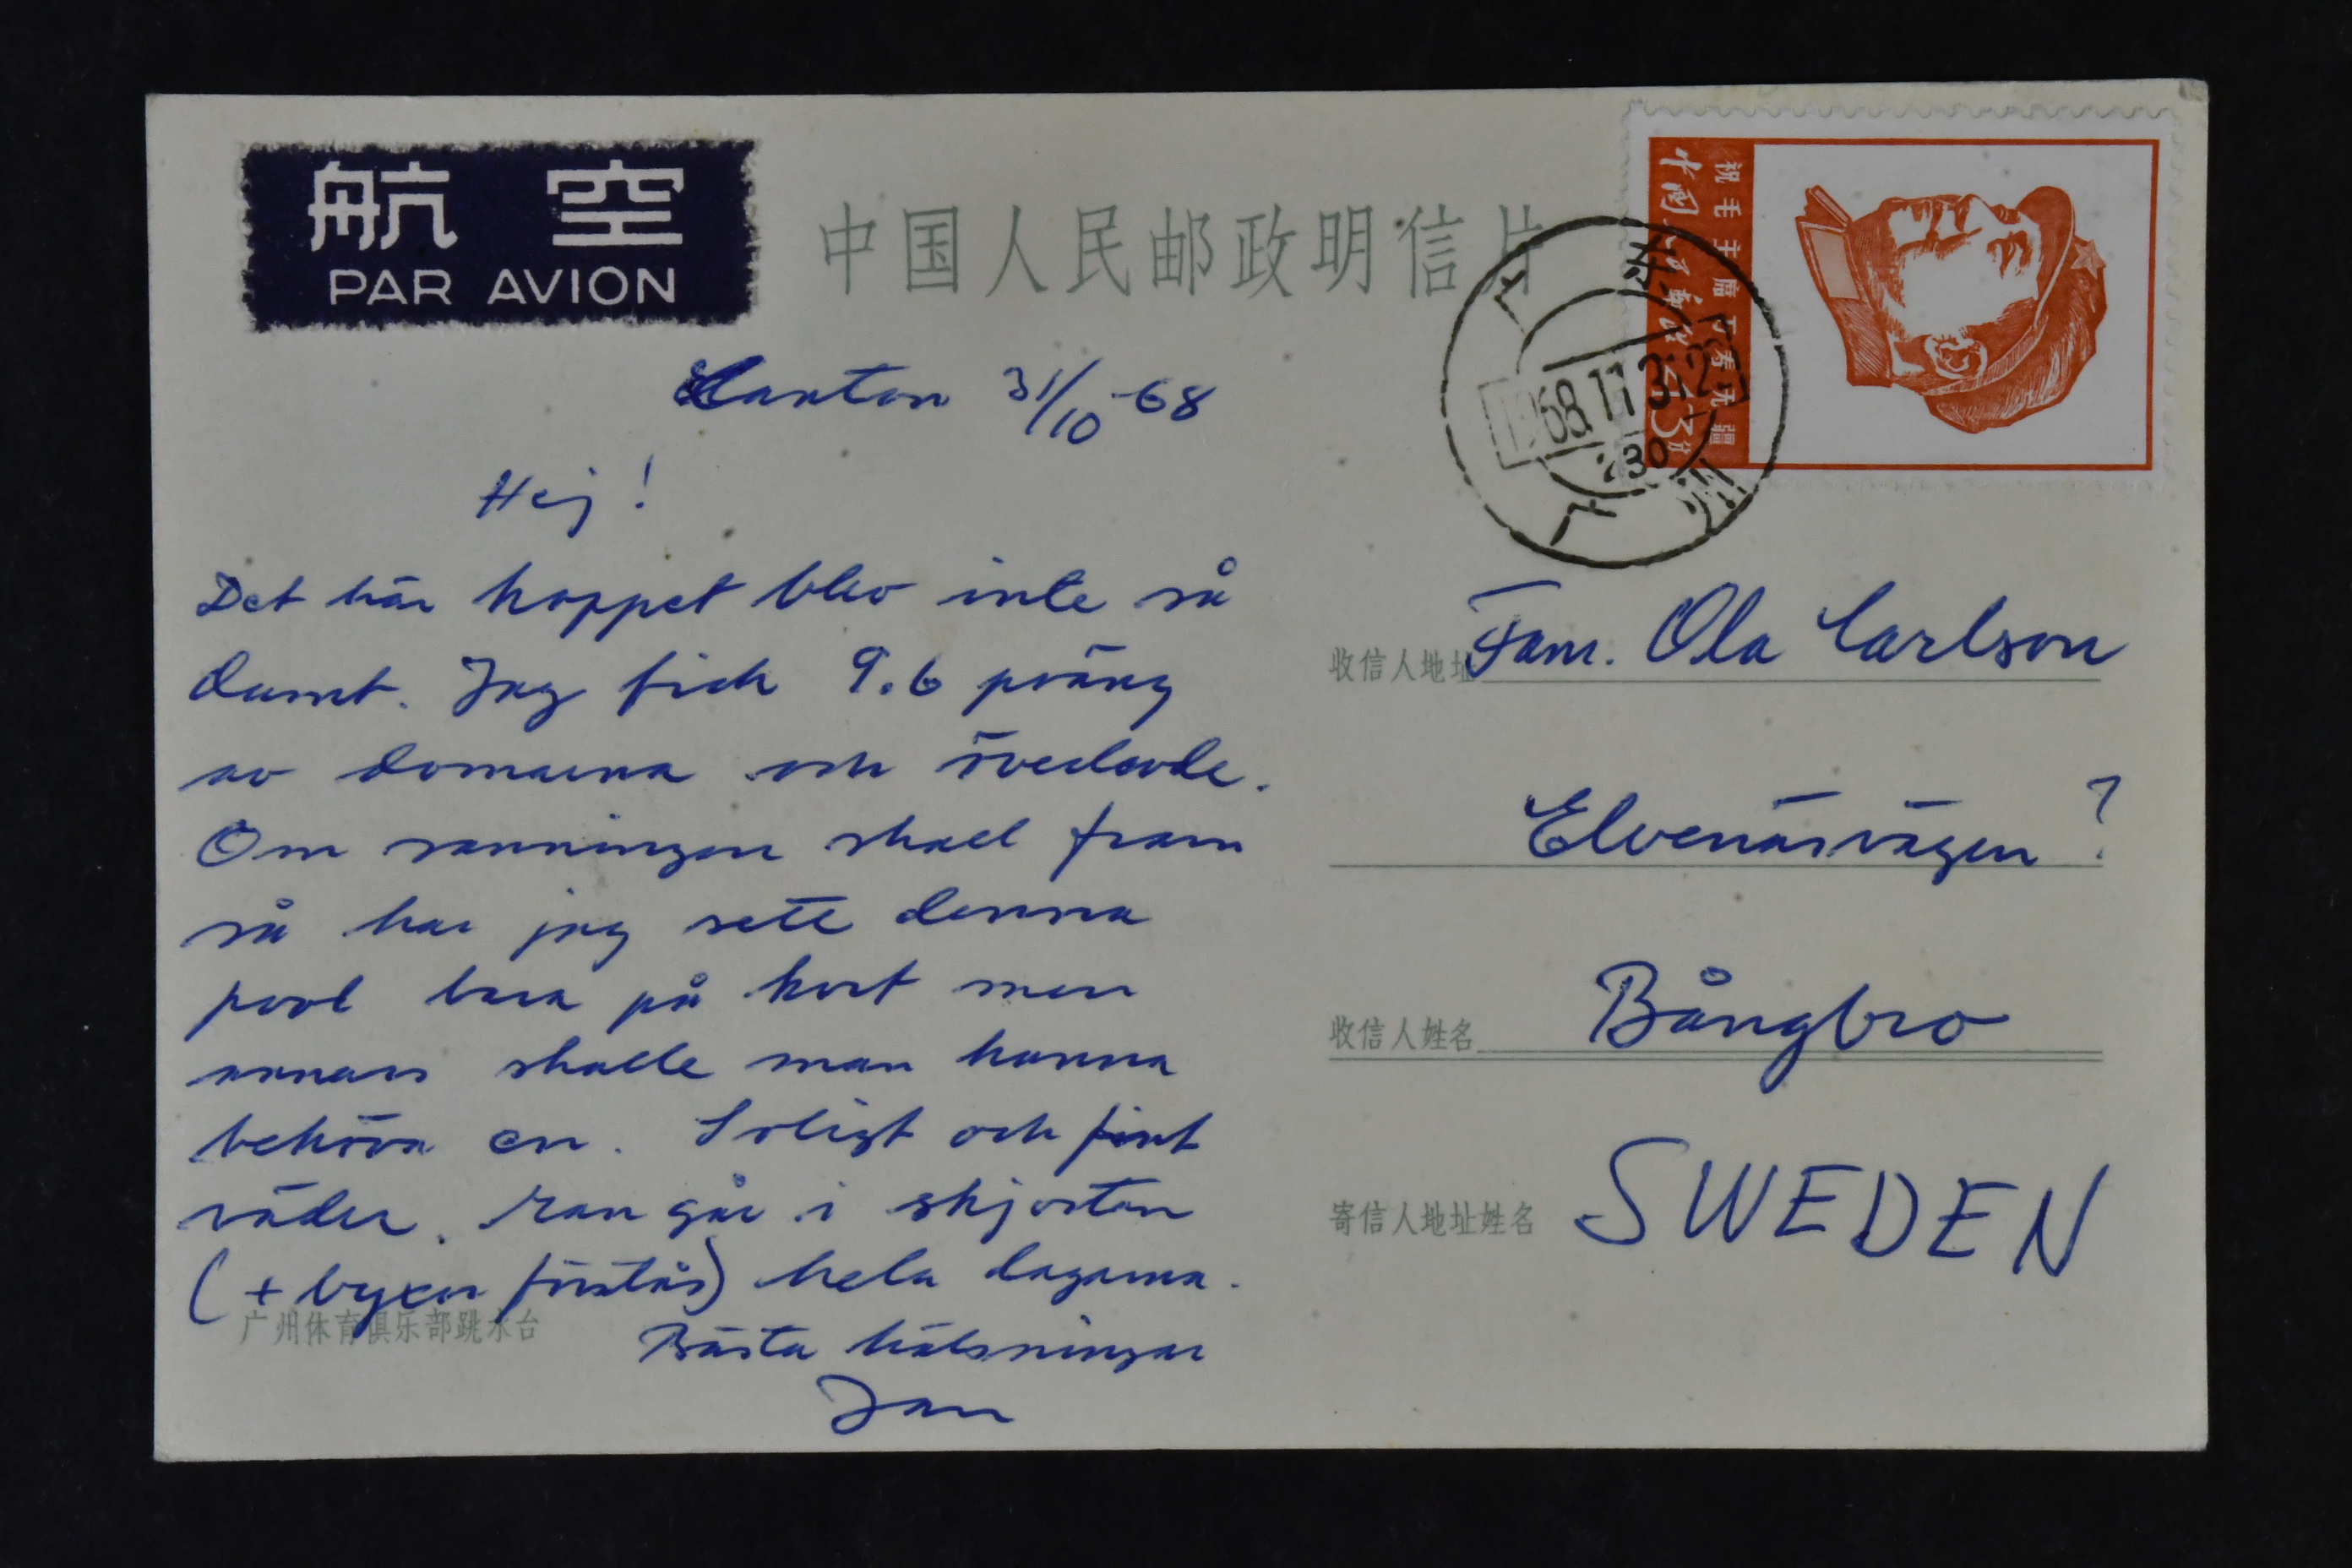 航 空
PAR AVION
中国人民邮政明信片
祝毛主席万寿无疆
广东
1968.11.3.
广州
Canton 31/10 -68
Hej!
Det här hoppet blev inte så
dumt. Jag fick 9.6 poäng
av domarna och överlevde.
Om sanningen skall fram
så har jag sett denna
pool bara på kort men
annars skulle man kunna
behöva en. Soligt och fint
väder. Man går i skjortan
(+ byxor förstås) hela dagarna.
Bästa hälsningar
Jan
广州体育俱乐部跳水台
收信人地址 Fam. Ola Carlson
Elvenäsvägen ?
收信人姓名 Bångbro
寄信人地址姓名 SWEDEN